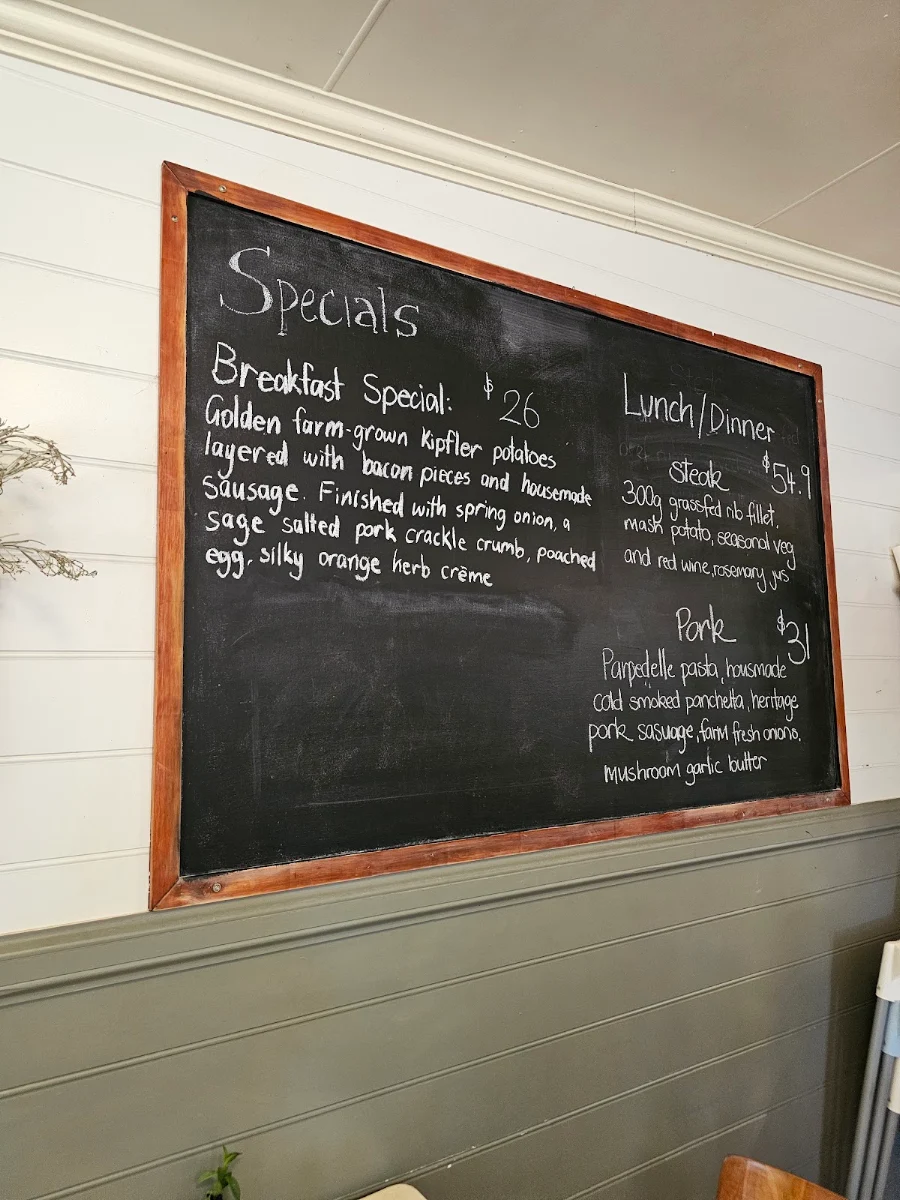 Specials
Breakfast Special: $26
Golden farm-grown Kipfler potatoes
layered with bacon pieces and housemade
sausage. Finished with spring onion, a
sage salted pork crackle crumb, poached
egg, silky orange herb crème
Lunch/Dinner
steak $54.9
300g grassfed rib fillet,
mash potato, seasonal veg
and red wine, rosemary jus
Pork $31
Parpedelle pasta, housmade
cold smoked panchetta, heritage
pork sasuage, farm fresh onions,
mushroom garlic butter